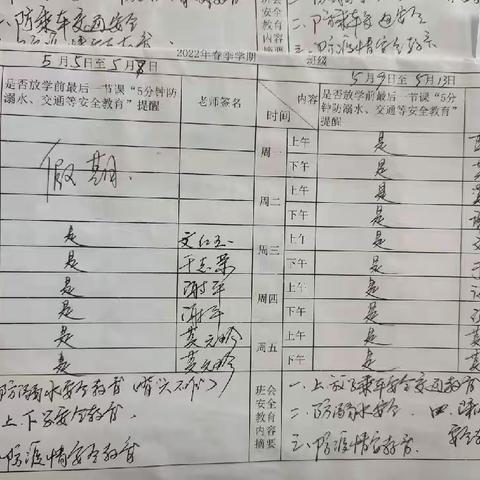 一、防乘车交通安全
班会
安全
教育
内容
摘要
二、防乘车交通安全
三、防疫情安全教育
2022年春季学期
班级
5月5日至5月8日
是否放学前最后一节课“5分钟防
溺水、交通等安全教育”
提醒
老师签名
内容
时间
5月9日至5月13日
是否放学前最后一节课“5分
钟防溺水、交通等安全教育”
提醒
假期.
周一
上午
是
下午
是
周二
上午
是
下午
是
是
周三
上午
是
是
下午
是
是
谢平
周四
上午
是
是
谢平
下午
是
是
莫元珍
周五
上午
是
是
莫元珍
下午
是
防溺水安全教育
上、下学安全教育.
防疫情安全教育
班会
安全
教育
内容
摘要
一、上放学乘车安全交通教育
二、防溺水安全. 四、
三、防疫情安全教育.